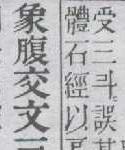 受三斗誤其
體石經以
象腹交文